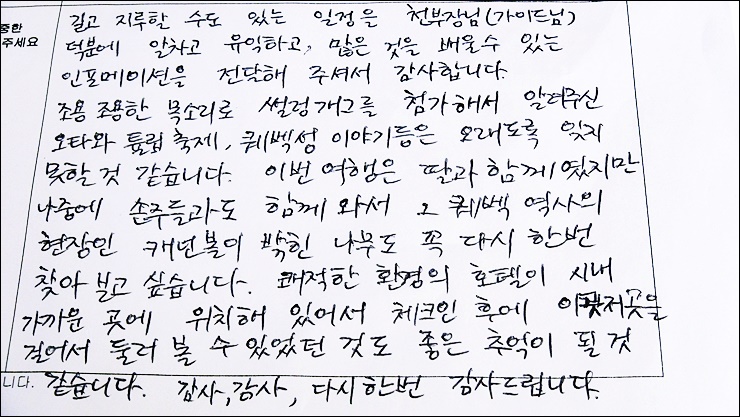 중한
주세요
길고 지루할 수도 있는 일정을 천부장님(가이드님)
덕분에 알차고 유익하고, 많은 것을 배울수 있는
인포메이션을 전달해 주셔서 감사합니다.
조용조용한 목소리로 썰렁개그를 첨가해서 알려주신
오타와 튤립축제, 퀘벡성 이야기등은 오래도록 잊지
못할것 같습니다. 이번 여행은 딸과 함께 했지만
나중에 손주들과도 함께 와서 그 퀘벡 역사의
현장인 캐넌볼이 박힌 나무도 꼭 다시 한번
찾아 보고 싶습니다. 쾌적한 환경의 호텔이 시내
가까운 곳에 위치해 있어서 체크인 후에 이곳저곳을
걸어서 둘러 볼 수 있었던 것도 좋은 추억이 될 것
니다. 같습니다. 감사, 감사, 다시한번 감사드립니다.